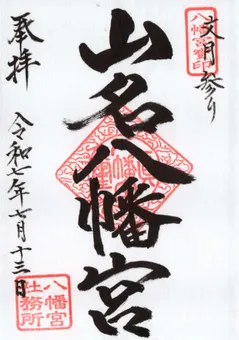 八幡宮璽印
文月参り
山名八幡宮
奉拝
令和七年七月十三日
八幡宮
社務所